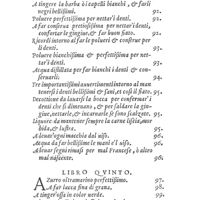 A tingere la barba ò capelli bianchi, & farli
negri bellissimi. 92.
Poluere perfettissima per nettar'i denti. 92.
A far conserua perfettissima per nettar'i denti,
confortar le gingiue, & far buon fiato. 92.
Ricordi intorno al far le polueri & conserue per
li denti. 93.
Poluere bianchissima & perfettissima per net-
tar'i denti. 93.
Acqua distillata per far bianchi i denti & con-
seruarli. 94.
Tre importantissimi auuertimenti intorno al man
tenersi i denti bellissimi & sani, & il fiato. 94.
Decottione da lauarsi la bocca per confermar' i
denti che si dimenano, & per saldare le gingi-
ue, & far ritornar la carne ou'è scarnata. 95.
Liquore da mantener sempre la carne liscia, mor
bida, & lustra. 95.
A leuar' ogni macchia dal uiso. 96.
Acqua da far bellissime le mani & il uiso. 96.
A leuar' segni rimasi per mal Francese, ò altro
mal nascente. 96.
LIBRO QVINTO.
Azurro oltramarino perfettissimo. 97.
A far lacca fina di grana, 98.
A tinger' ossa in color verde. 99.